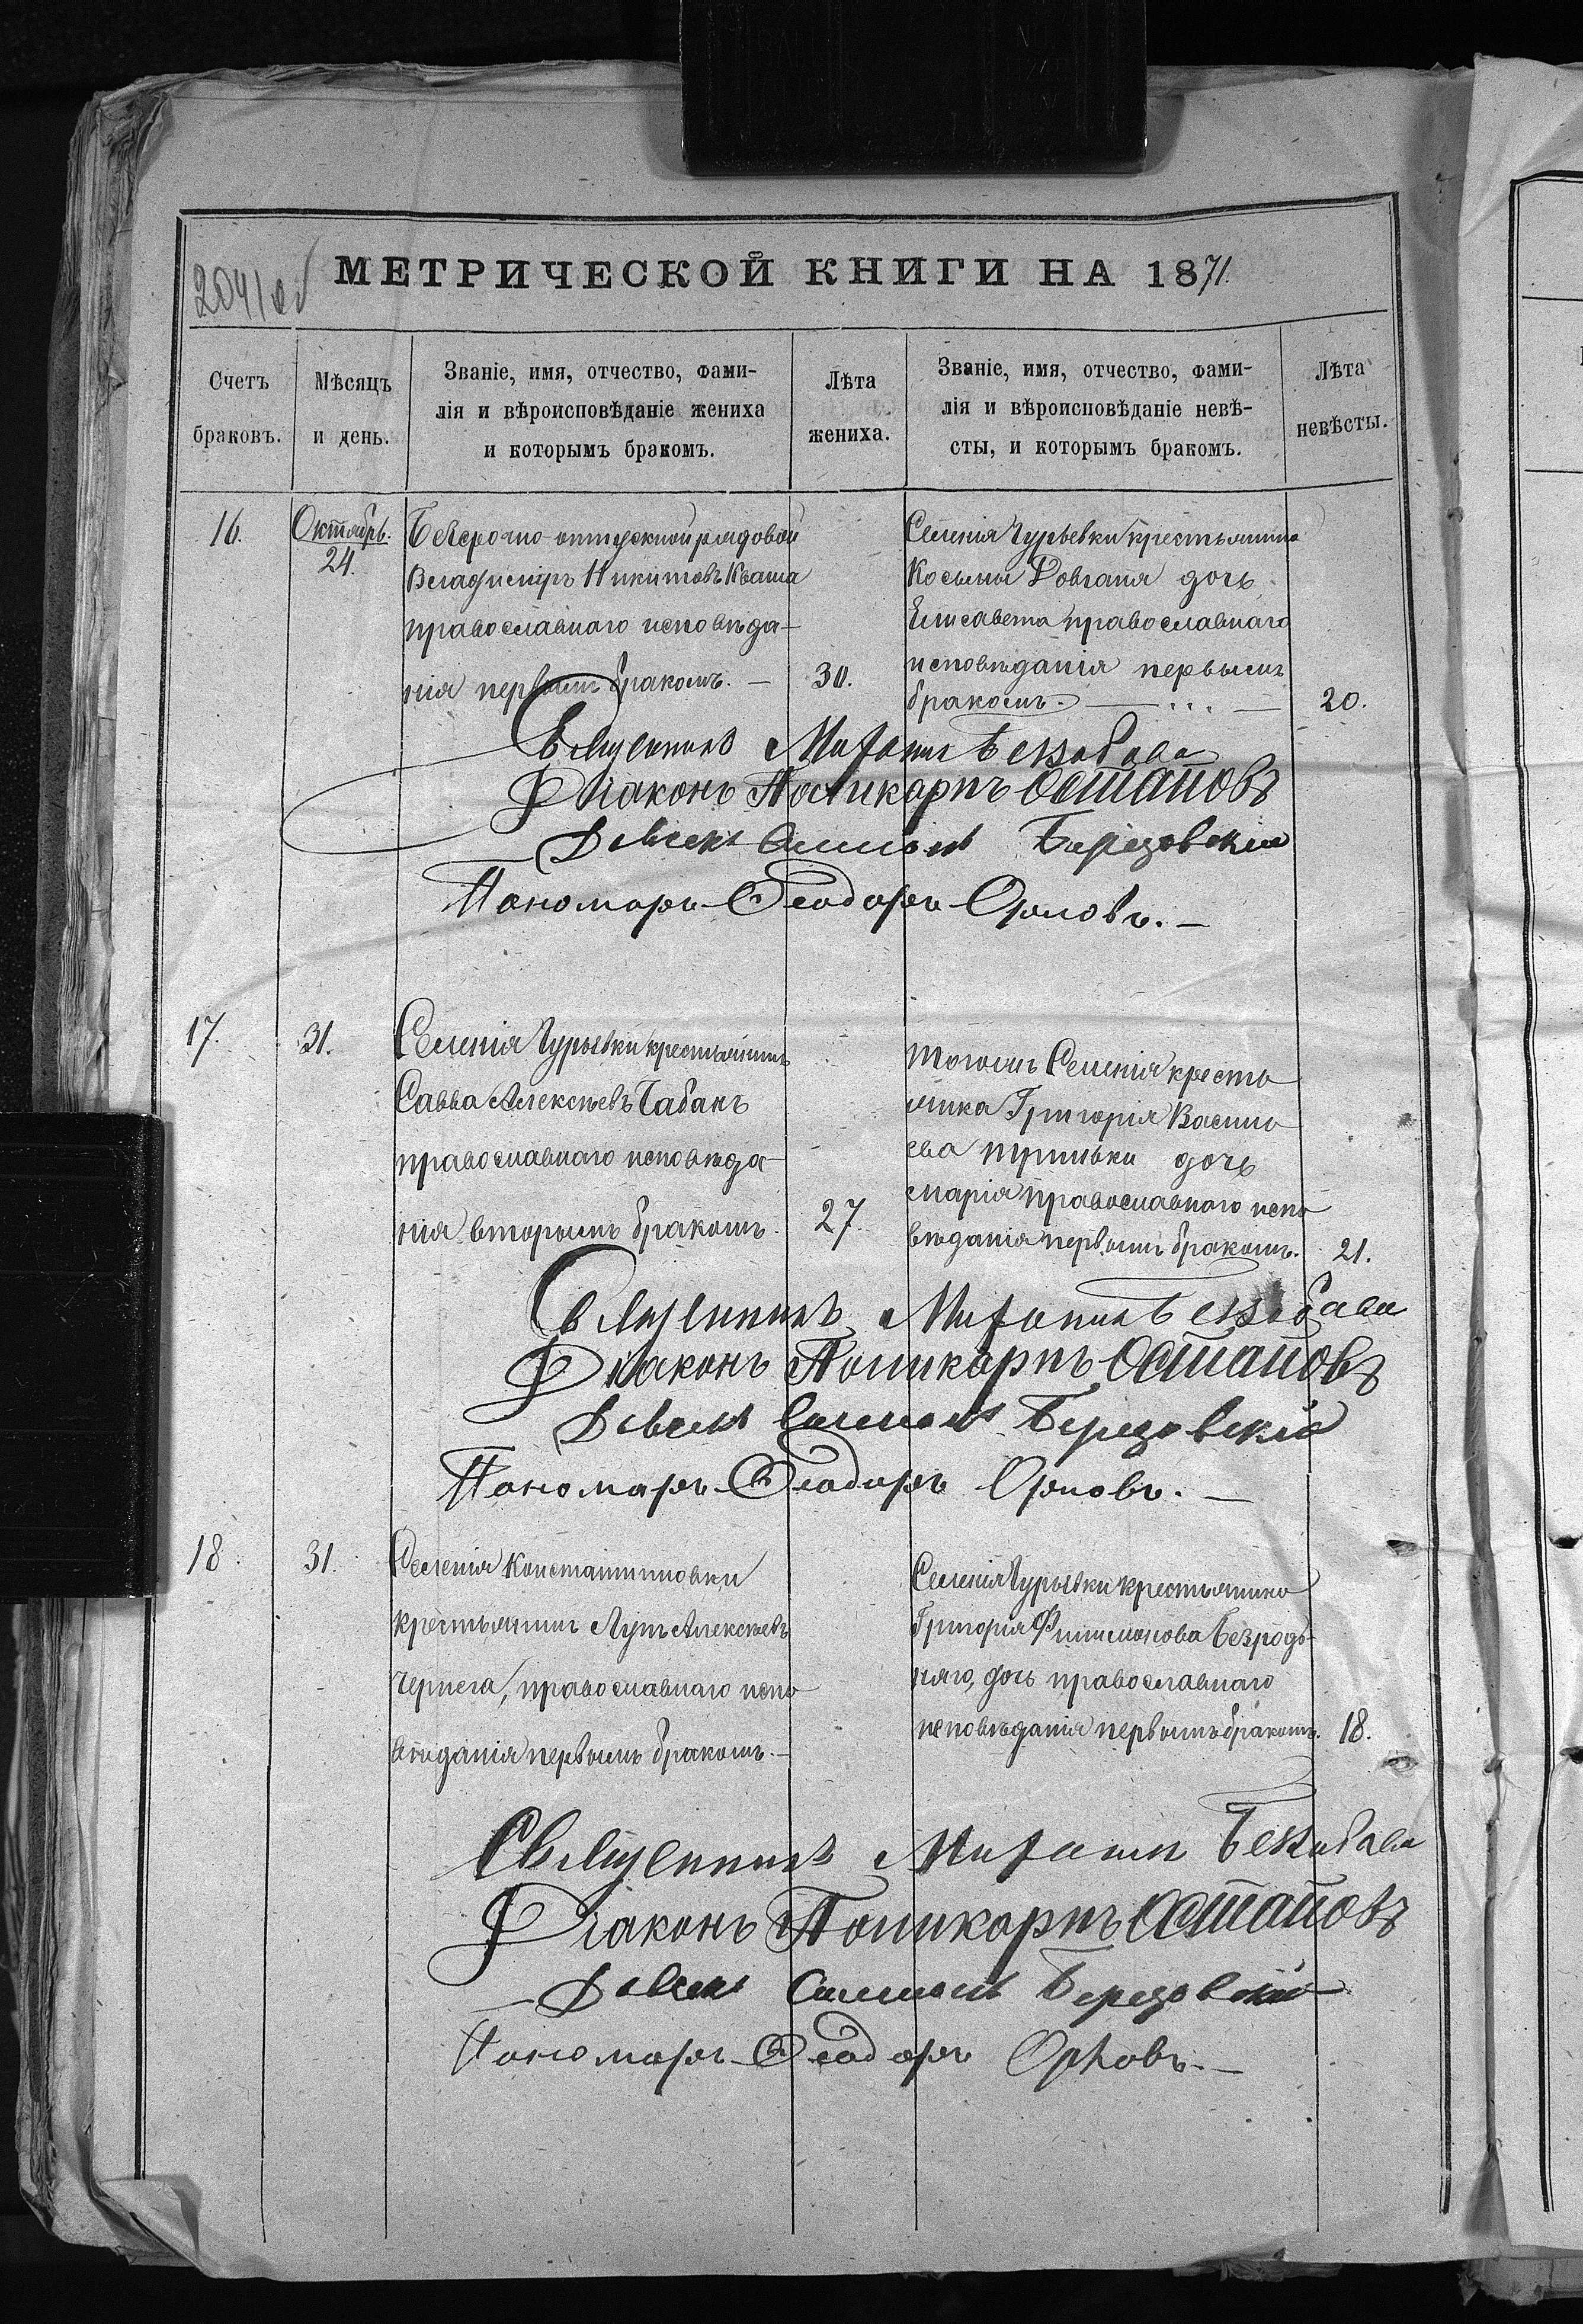 2041 об
МЕТРИЧЕСКОЙ КНИГИ НА 1871.
Счетъ браковъ.
Мѣсяцъ и день.
Званіе, имя, отчество, фами-
лія и вѣроисповѣданіе жениха
и которымъ бракомъ.
Лѣта жениха.
Званіе, имя, отчество, фами-
лія и вѣроисповѣданіе невѣ-
сты, и которымъ бракомъ.
Лѣта невѣсты.
16.
Октябрь.
24.
Безсрочно-отпускной рядовой
Владиміръ Никитовъ Кваша
православнаго исповѣда-
нія первымъ бракомъ. —
30.
Селенія Гурьевки крестьянина
Косьмы Довганя дочь
Елисавета православнаго
исповѣданія первымъ
бракомъ. —
20.
Священникъ Митрофанъ
Діаконъ Поликарпъ Остаповъ
Дьячекъ Симеонъ Березовскій
Пономарь Ѳеодоръ Орловъ. —
17.
31.
Селенія Гурьевки крестьянинъ
Савва Алексѣевъ Чабанъ
православнаго исповѣда-
нія вторымъ бракомъ.
27
тогожъ Селенія крестья
нина Григорія Василь
ева дочь
Марія православнаго испо
вѣданія первымъ бракомъ.
21.
Священникъ Митрофанъ
Діаконъ Поликарпъ Остаповъ
Дьячекъ Симеонъ Березовскій
Пономарь Ѳеодоръ Орловъ. —
18.
31.
Селенія Константиновки
крестьянинъ Лупъ Алексѣевъ
Чернега, православнаго испо
вѣданія первымъ бракомъ. —
Селенія Гурьевки крестьянина
Григорія Филимонова Безрод-
няго, дочь православнаго
исповѣданія первымъ бракомъ.
18.
Священникъ Митрофанъ
Діаконъ Поликарпъ Остаповъ
Дьячекъ Симеонъ Березовскій
Пономарь Ѳеодоръ Орловъ. —